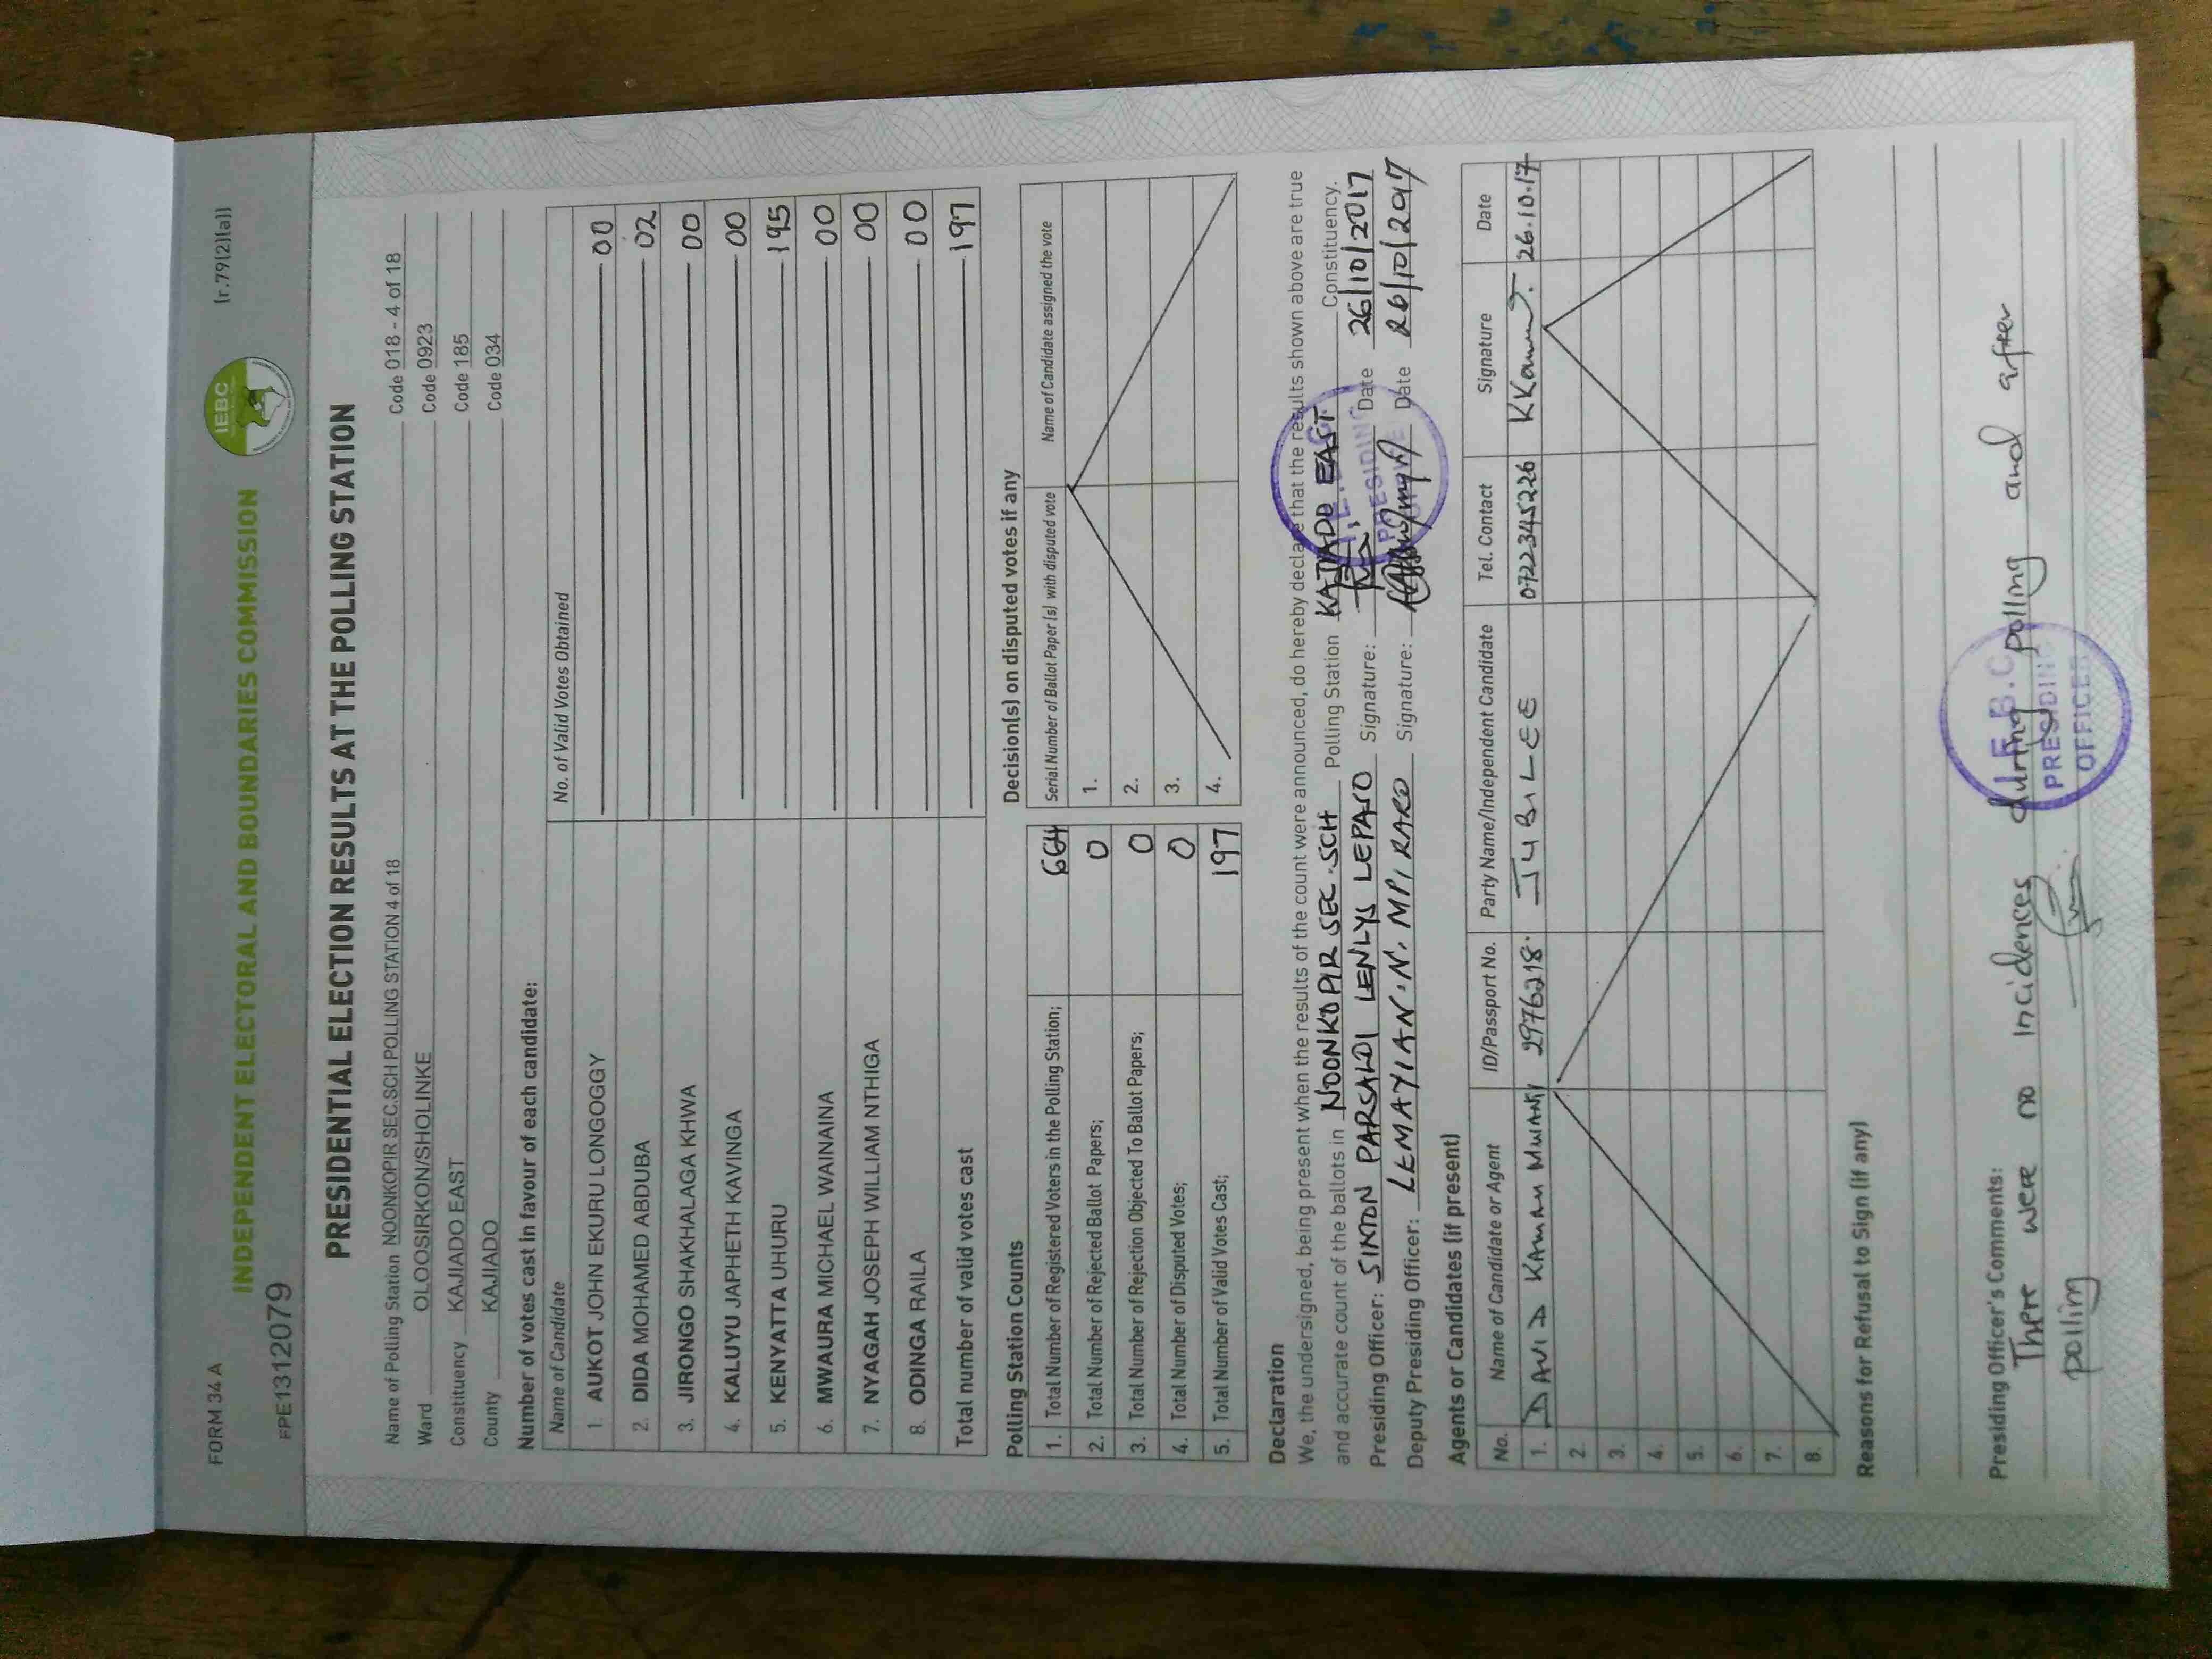 FORM 34 A (r.79(2)(a))
INDEPENDENT ELECTORAL AND BOUNDARIES COMMISSION
IEBC
FPE1312079
PRESIDENTIAL ELECTION RESULTS AT THE POLLING STATION
Name of Polling Station NOONKOPIR SEC.SCH POLLING STATION 4 of 18 Code 018 - 4 of 18
Ward OLOOSIRKON/SHOLINKE Code 0923
Constituency KAJIADO EAST Code 185
County KAJIADO Code 034
Number of votes cast in favour of each candidate:
Name of Candidate No. of Valid Votes Obtained
1. AUKOT JOHN EKURU LONGOGGY 00
2. DIDA MOHAMED ABDUBA 02
3. JIRONGO SHAKHALAGA KHWA 00
4. KALUYU JAPHETH KAVINGA 00
5. KENYATTA UHURU 195
6. MWAURA MICHAEL WAINAINA 00
7. NYAGAH JOSEPH WILLIAM NTHIGA 00
8. ODINGA RAILA 00
Total number of valid votes cast 197
Polling Station Counts
1. Total Number of Registered Voters in the Polling Station; 664
2. Total Number of Rejected Ballot Papers; 0
3. Total Number of Rejection Objected To Ballot Papers; 0
4. Total Number of Disputed Votes; 0
5. Total Number of Valid Votes Cast; 197
Decision(s) on disputed votes if any
Serial Number of Ballot Paper (s) with disputed vote Name of Candidate assigned the vote
1.
2.
3.
4.
Declaration
We, the undersigned, being present when the results of the count were announced, do hereby declare that the results shown above are true
and accurate count of the ballots in NOONKOPIR SEC.SCH Polling Station KAJIADO EAST Constituency.
Presiding Officer: SIMON PARSALOI LENLYS LEPASO Signature: Date 26/10/2017
Deputy Presiding Officer: LEMAYIAN.N. MPIRARO Signature: Date 26/10/2017
I.E.B.C PRESIDING
Agents or Candidates (if present)
No. Name of Candidate or Agent ID/Passport No. Party Name/Independent Candidate Tel. Contact Signature Date
1. DAVID KAMAU MWANGI 29762218. JUBILEE 0722345226 26.10.17
2.
3.
4.
5.
6.
7.
8.
Reasons for Refusal to Sign (if any)
Presiding Officer's Comments:
There were no Incidences during polling and after
polling
I.E.B.C
PRESIDING
OFFICER